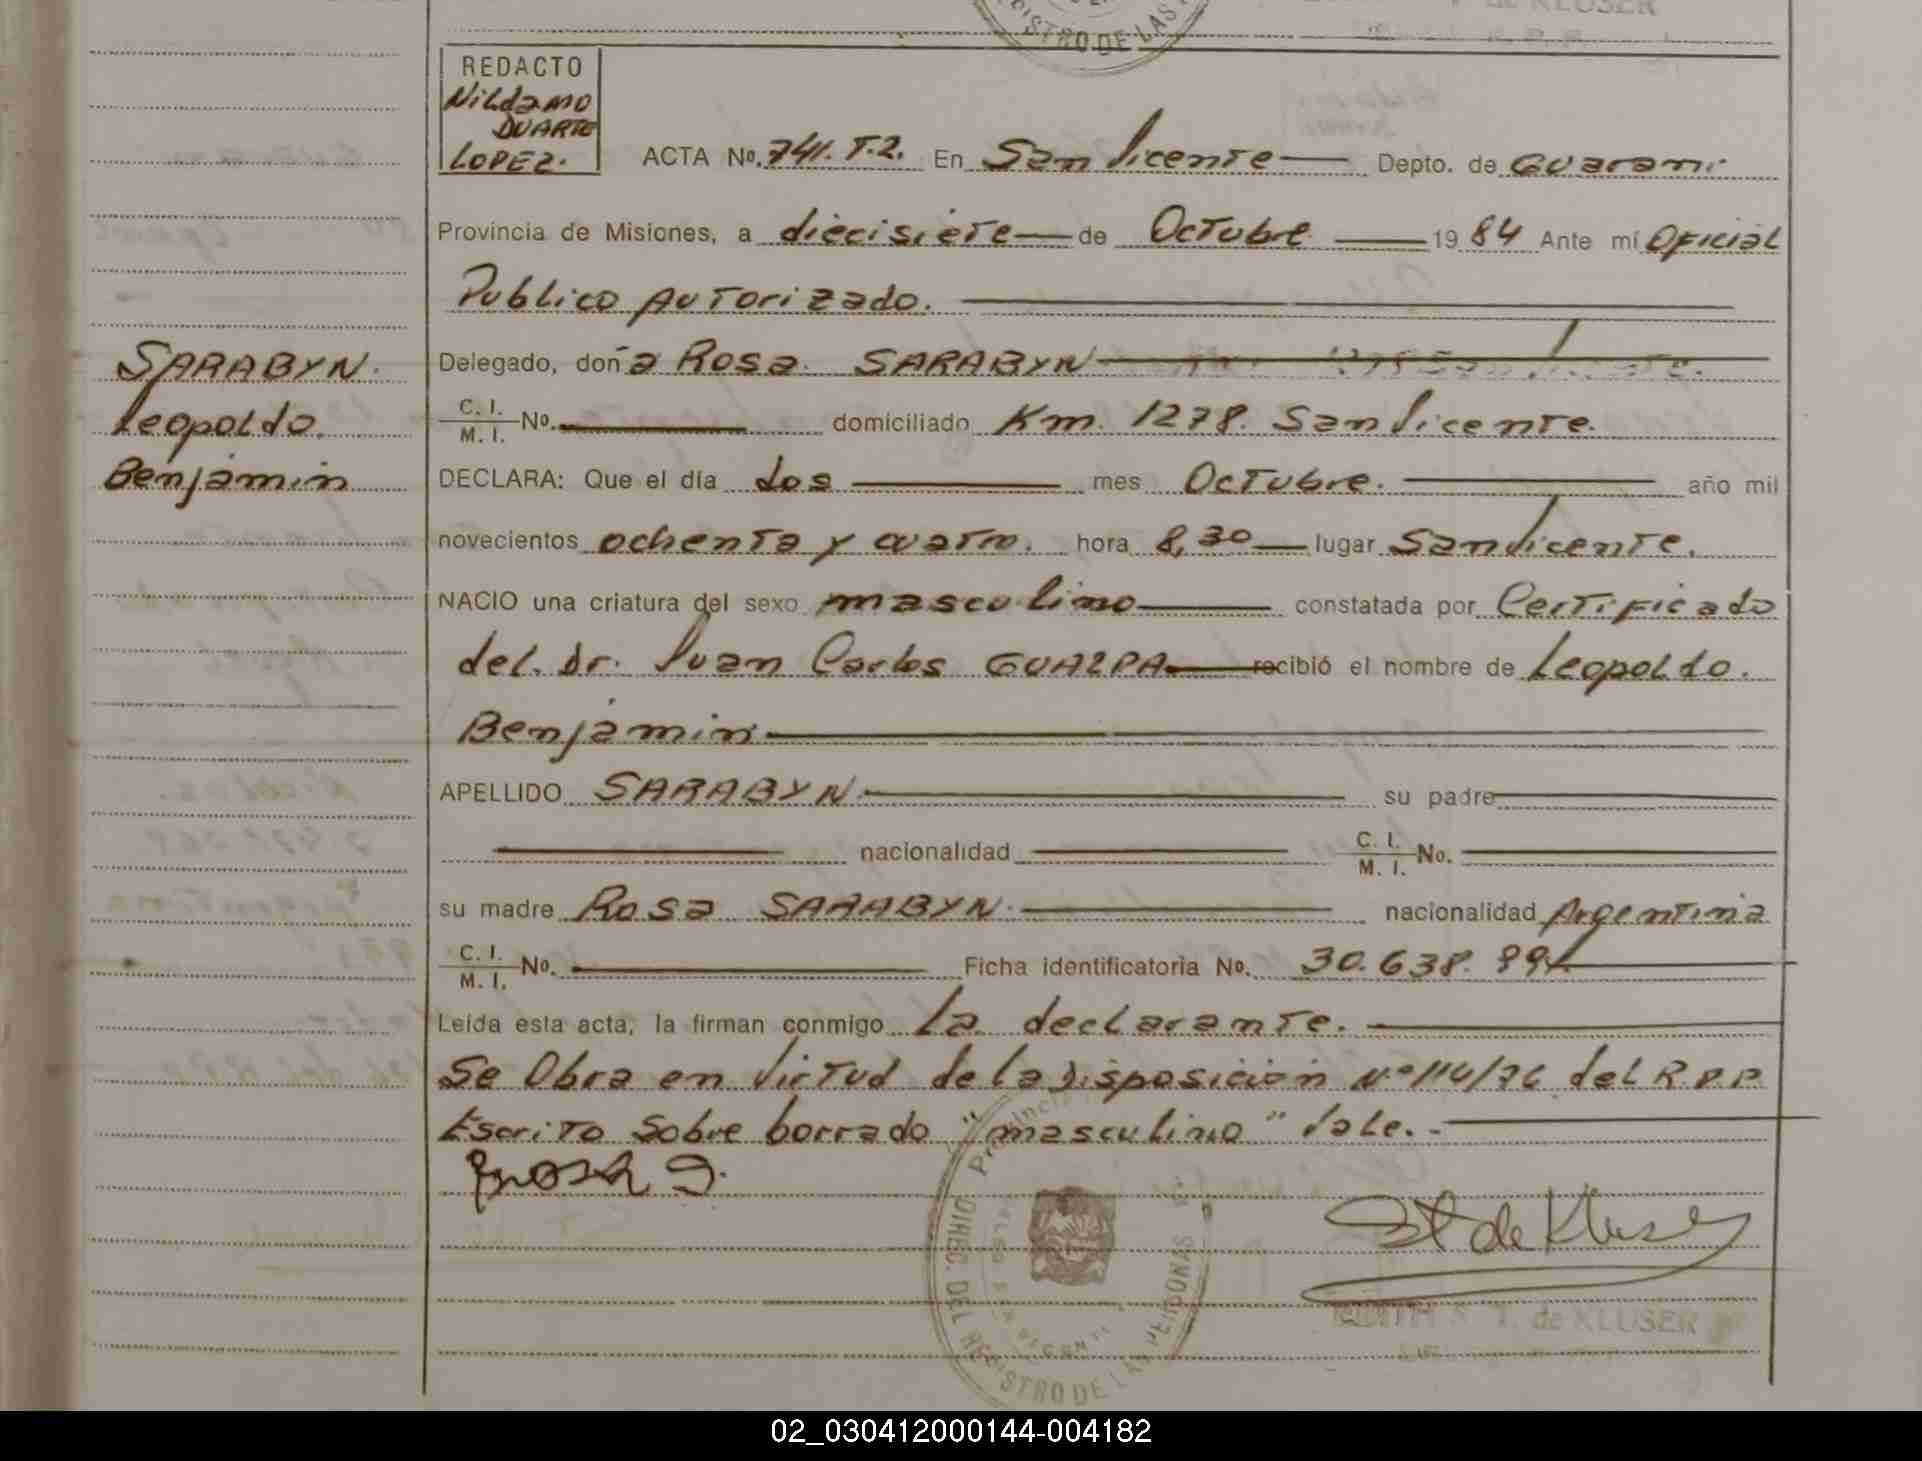 REDACTO
Nildamo
DUARTE
LOPEZ.
ACTA No. 741. T.2. En San Vicente Depto. de Guarani
Provincia de Misiones, a diecisiete de Octubre 1984 Ante mí Oficial
Publico Autorizado.
Delegado, doña Rosa SARABYN
SARABYN.
Leopoldo.
Benjamin
C. I. / M. I. No. domiciliado Km. 1278. San Vicente.
DECLARA: Que el día dos mes Octubre. año mil
novecientos ochenta y cuatro. hora 8,30 lugar San Vicente.
NACIO una criatura del sexo masculino constatada por Certificado
del. Dr. Juan Carlos GUALPA recibió el nombre de Leopoldo.
Benjamin
APELLIDO SARABYN su padre
nacionalidad C. I. / M. I. No.
su madre Rosa SARABYN nacionalidad Argentina
C. I. / M. I. No. Ficha identificatoria No. 30.638.
Leída esta acta, la firman conmigo La declarante.
Se Obra en Virtud de la Disposicion N.º 114/76 del R.P.P.
Escrito Sobre borrado "masculino" Vale. -
Provincia
DIREC. DEL REGISTRO DE LAS PERSONAS
St de Kluser
EDITH S. T. de KLUSER
02_030412000144-004182